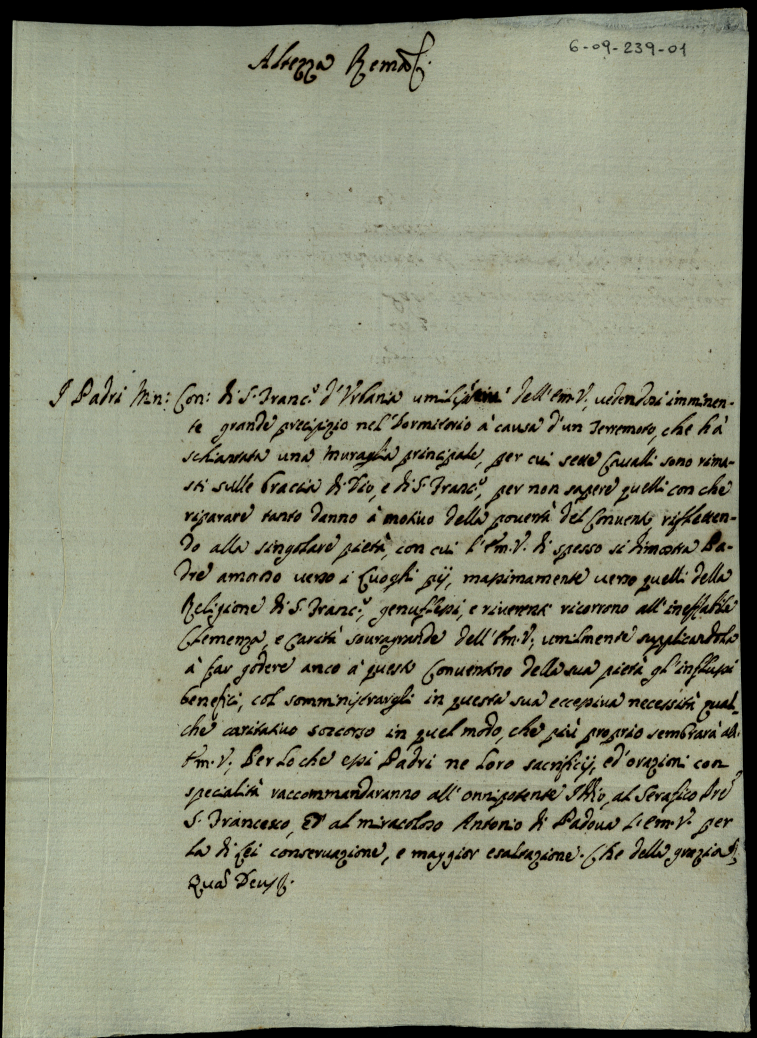 6-09-239-01
Altezza Rema
I Padri Min: Con: di S. Franc.º d'Urbania umiliss.mi dell'Em.V., vedendosi imminen-
te grande precipizio nel Dormitorio à causa d'un Terremoto, che hà
schiantata una muraglia principale, per cui sette Cavalli sono rima-
sti sulle braccia di Dio, e di S. Franc.º, per non sapere quelli con che
riparare tanto danno à motivo della povertà del Convento, rifletten-
do alla singolare pietà, con cui l'Em.V. di spesso si dimostra Pa-
dre amoroso verso i Luoghi pij, massimamente verso quelli della
Religione di S. Franc.º, genuflessi, e riverenti ricorrono all'ineffabile
Clemenza, e Carità souragrande dell'Em.V., umilmente supplicandola
à far godere anco à questo Conventino della sua pietà gl'influssi
benefici, col somministrargli in questa sua eccessiva necessità qual-
che caritativo soccorso in quel modo, che più proprio sembrarà all'
Em.V., Per lo che essi Padri ne loro sacrificij, ed'orazioni con
specialità raccommandaranno all'onnipotente Iddio, al Serafico Pre
S. Francesco, Et al miracoloso Antonio di Padova l'Em.V. per
la di Lei conservazione, e maggior esaltazione. Che della grazia
Quam Deus